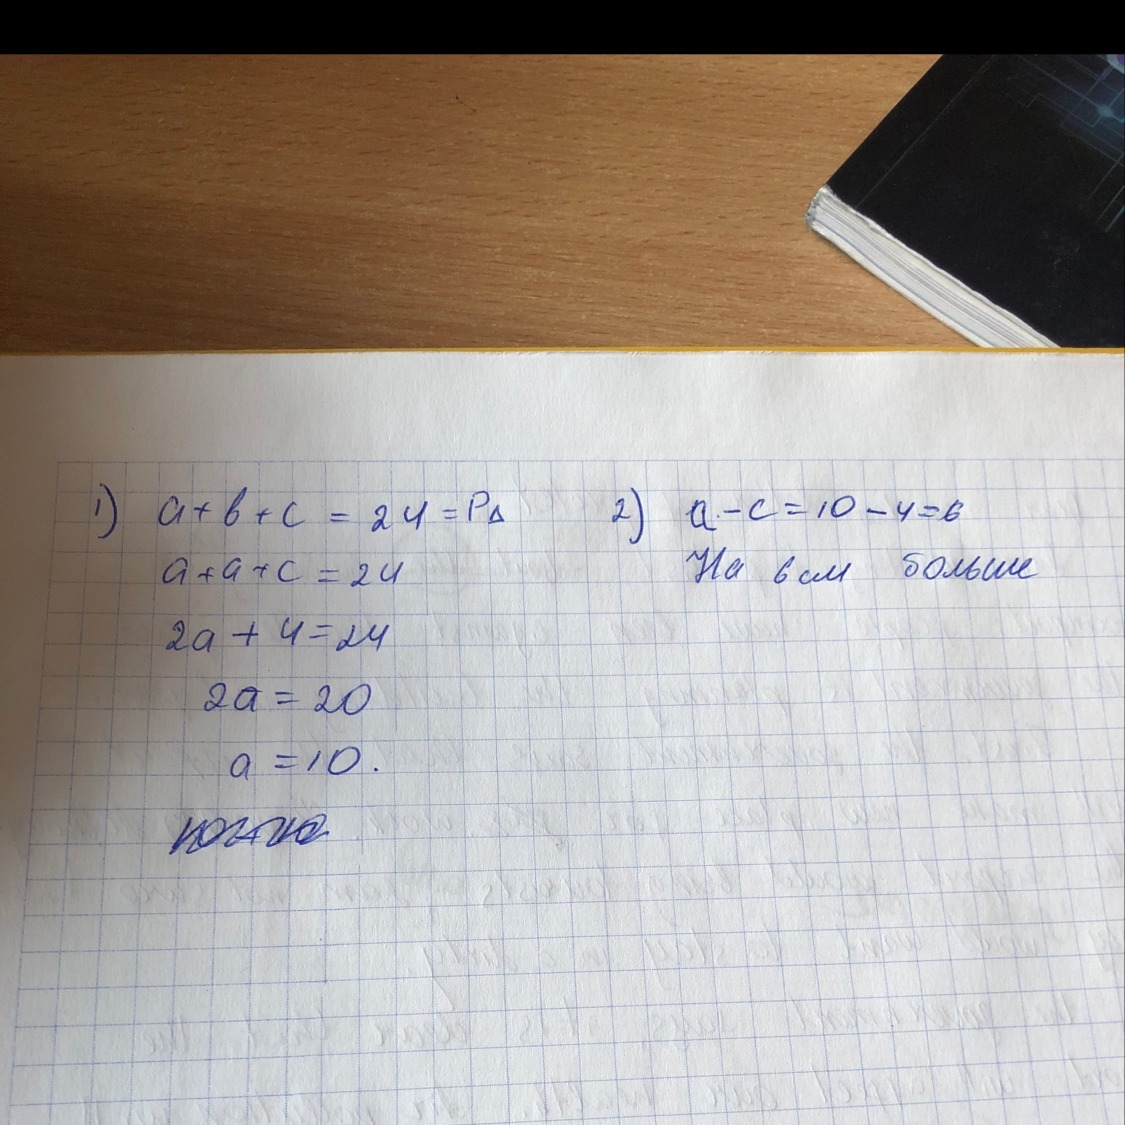 1) a + b + c = 24 = P∆
a + a + c = 24
2a + 4 = 24
2a = 20
a = 10.
2) a - c = 10 - 4 = 6
На 6 см больше